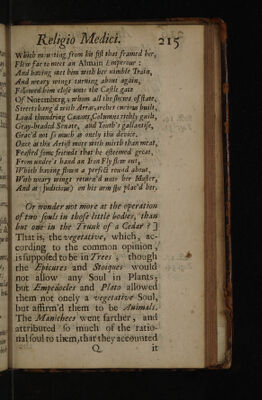 Religio Medici. 215
Which mounting from his fist that framed her,
Flew far to meet an Almain Emperour :
And having met him with her nimble Train,
And weary wings turning about again,
Followed him close unto the Castle gate
Of Noremberg, whom all the showes of state,
Streets hang'd with Arras, arches curious built,
Loud thundring Canons, Columns richly guilt,
Gray-headed Senate, and Youth's gallantise,
Grac'd not so much as onely this devise.
Once as this Artist more with mirth than meat,
Feasted some friends that he esteemed great,
From under's hand an Iron Fly flew out,
Which having flown a perfect round about,
With weary wings return'd unto her Master,
And as (judicious) on his arm he plac'd her.
Or wonder not more at the operation
of two souls in those little bodies, than
but one in the Trunk of a Cedar ? ]
That is, the vegetative, which, ac-
cording to the common opinion,
is supposed to be in Trees ; though
the Epicures and Stoiques would
not allow any Soul in Plants;
but Empedocles and Plato allowed
them not onely a vegetative Soul,
but affirm'd them to be Animals.
The Manichees went farther, and
attributed so much of the ratio-
nal soul to them, that they accounted
Q it